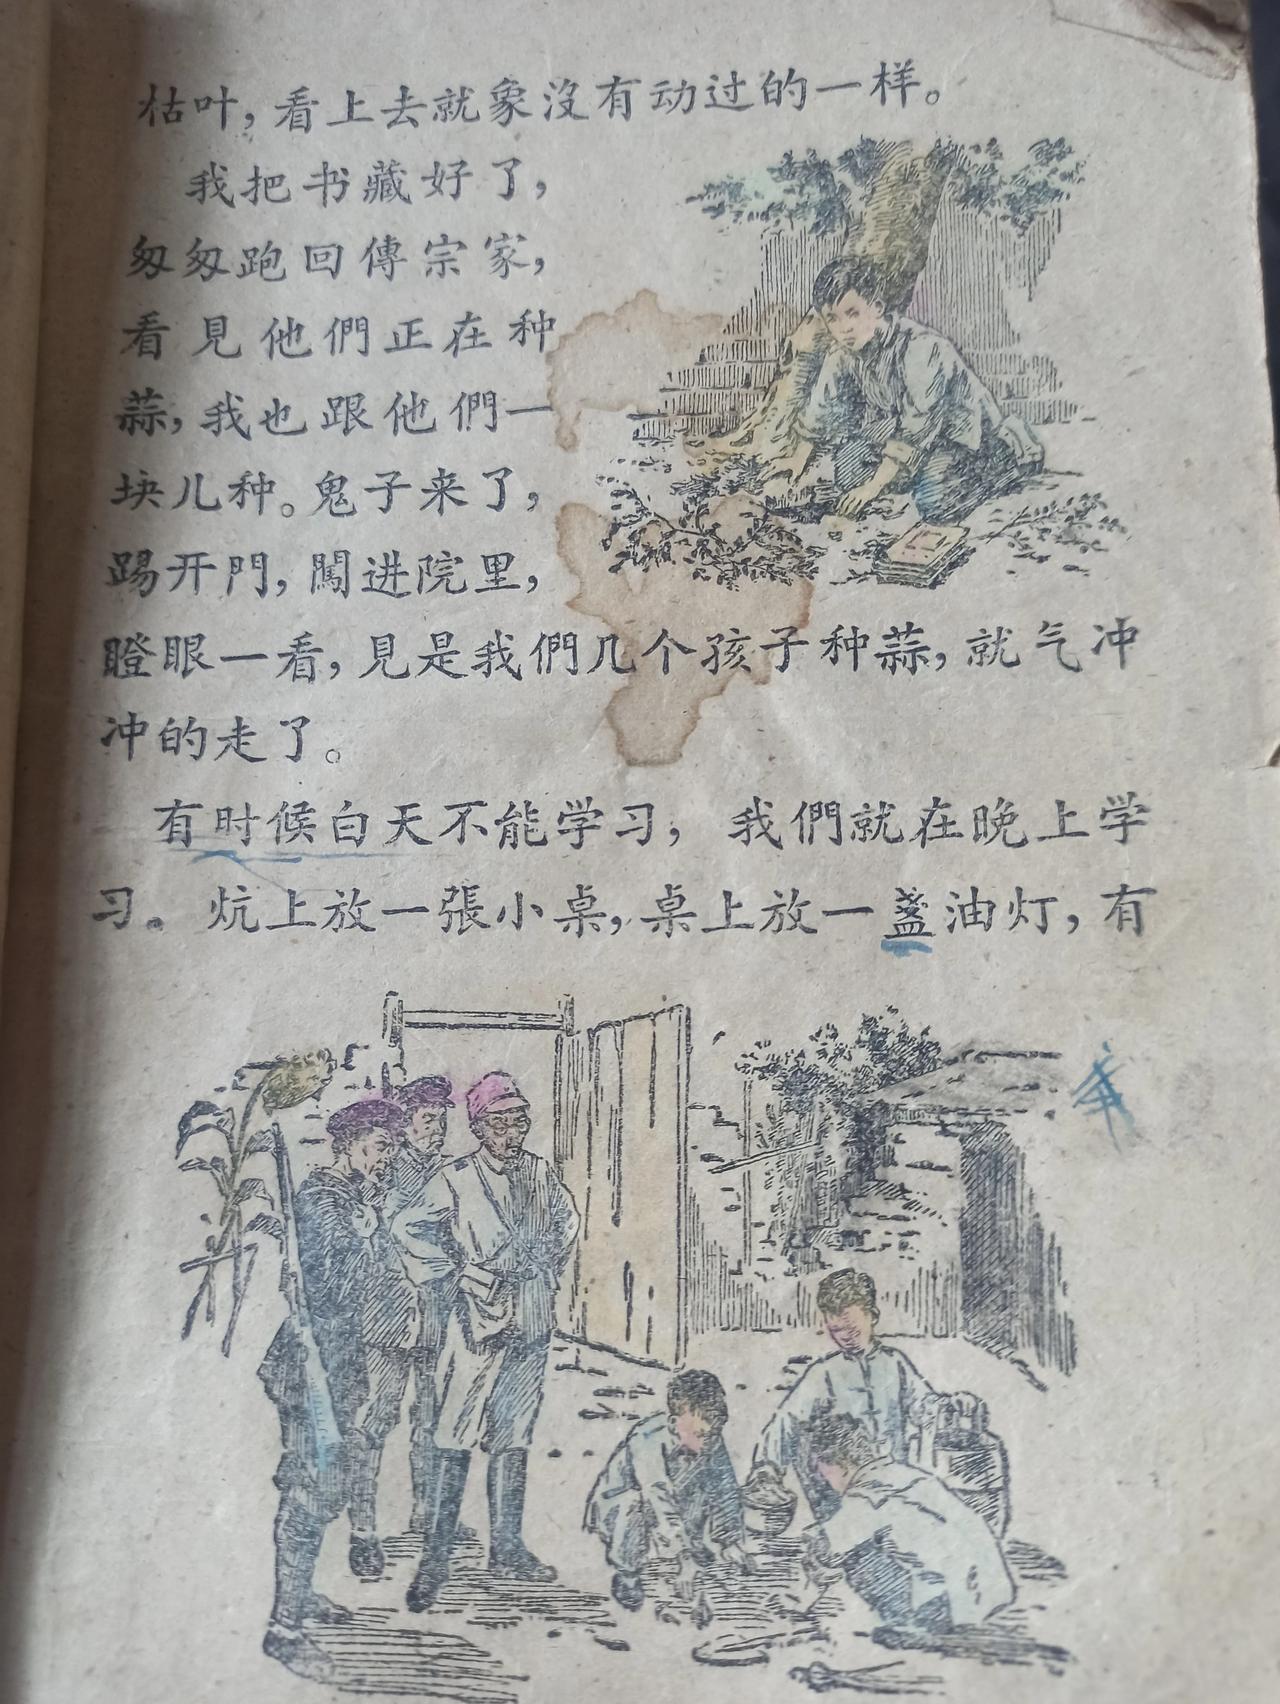 枯叶，看上去就象沒有动过的一样。
我把书藏好了，
匆匆跑回傳宗家，
看見他們正在种
蒜，我也跟他們一
块儿种。鬼子来了，
踢开門，闖进院里，
瞪眼一看，見是我們几个孩子种蒜，就气冲
冲的走了。
有时候白天不能学习，我們就在晚上学
习。炕上放一張小桌，桌上放一盞油灯，有